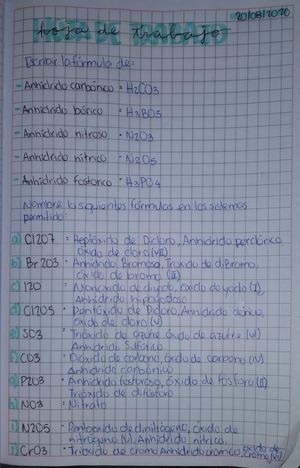 20/08/2020
Hoja de trabajo
Escribir la fórmula de:
- Anhídrido carbónico = H2CO3
- Anhídrido bórico = H3BO3
- Anhídrido nitroso = N2O3
- Anhídrido nítrico = N2O5
- Anhídrido fosforico = H3PO4
Nombre la siguientes fórmulas en los sistemas
permitido:
a) Cl2O7 = Heptóxido de Dicloro, Anhidrido perclórico
Óxido de cloro (VII)
b) Br2O3 = Anhídrido Bromoso, Trióxido de diBromo
Óxido de bromo (III)
c) I2O = Monóxido de diyodo, óxido de yodo (I),
Anhídrido hipoyodoso
d) Cl2O5 = Pentóxido de Dicloro, Anhidrido clórico,
óxido de cloro (V)
e) SO3 = Trióxido de azufre óxido de azufre (VI)
Anhidrido Sulfúrico
f) CO3 = Dióxido de carbono, óxido de carbono (IV)
Anhidrido carbónico
g) P2O3 = Anhidrido fosforoso, óxido de fosforo (III)
Trióxido de difosforo
h) NO3 = Nitrato
i) N2O5 = Pentaoxido de dinitrógeno, óxido de
nitrógeno (V), Anhidrido nitrico.
j) CrO3 = Trioxido de cromo Anhidrido cromico, óxido de
cromo (VI)